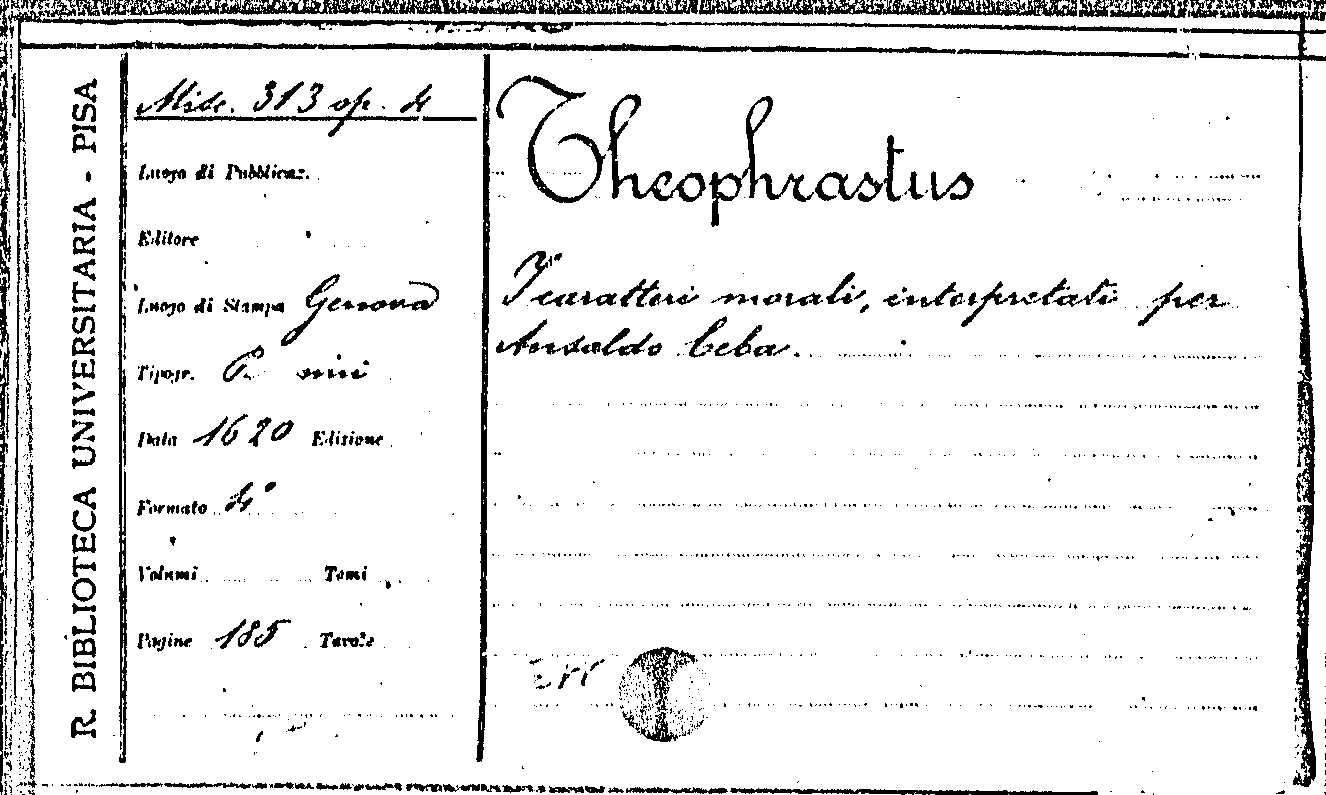 R. BIBLIOTECA UNIVERSITARIA - PISA
Misc. 313 op. 4
Luogo di Pubblicaz.
Editore
Luogo di Stampa Genova
Tipogr.
Data 1620 Edizione
Formato 4°
Volumi Tomi
Pagine 185 Tavole
Theophrastus
I caratteri morali, interpretati per
Ansaldo Ceba.